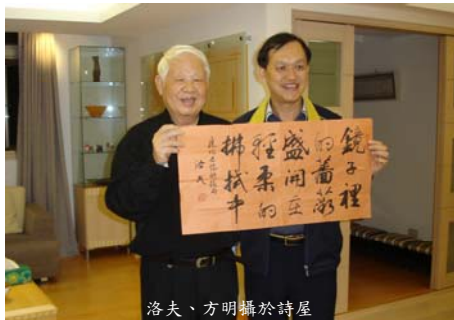 鏡子裡
的薔薇
盛開在
輕柔的
拂拭中
洛夫
洛夫、方明攝於詩屋